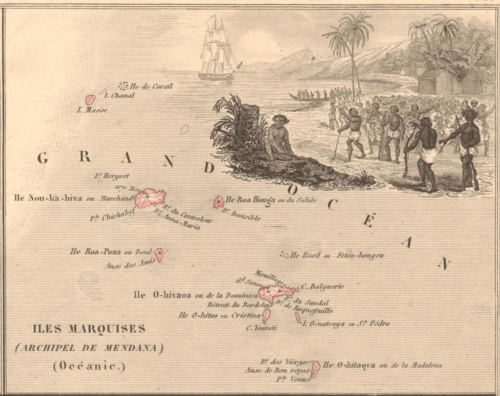 Ile de Corail
I. Chanal
I. Masse
GRAND OCÉAN
I^s Hergest
Ile Nou-ka-hiva ou Marchand
P^te Chichakof
B^e du Controleur
B^e Anna-Maria
Ile Roa Houga ou du Solide
B^e Invisible
Ile Roa-Poua ou Beud
Anse des Amis
Ile Hood ou Fetou-hougou
C. Balguerie
Ile O-hivaoa ou de la Dominica
du Sandal
Détroit du Bordelais
Ile O-hitao ou Cristina
I. O-nateaya ou S^n Pédro
ILES MARQUISES
(ARCHIPEL DE MENDANA)
(Océanie.)
B^e des Vierges
Anse de Bon repos
P^te Venus
Ile O-hitaova ou de la Madalena